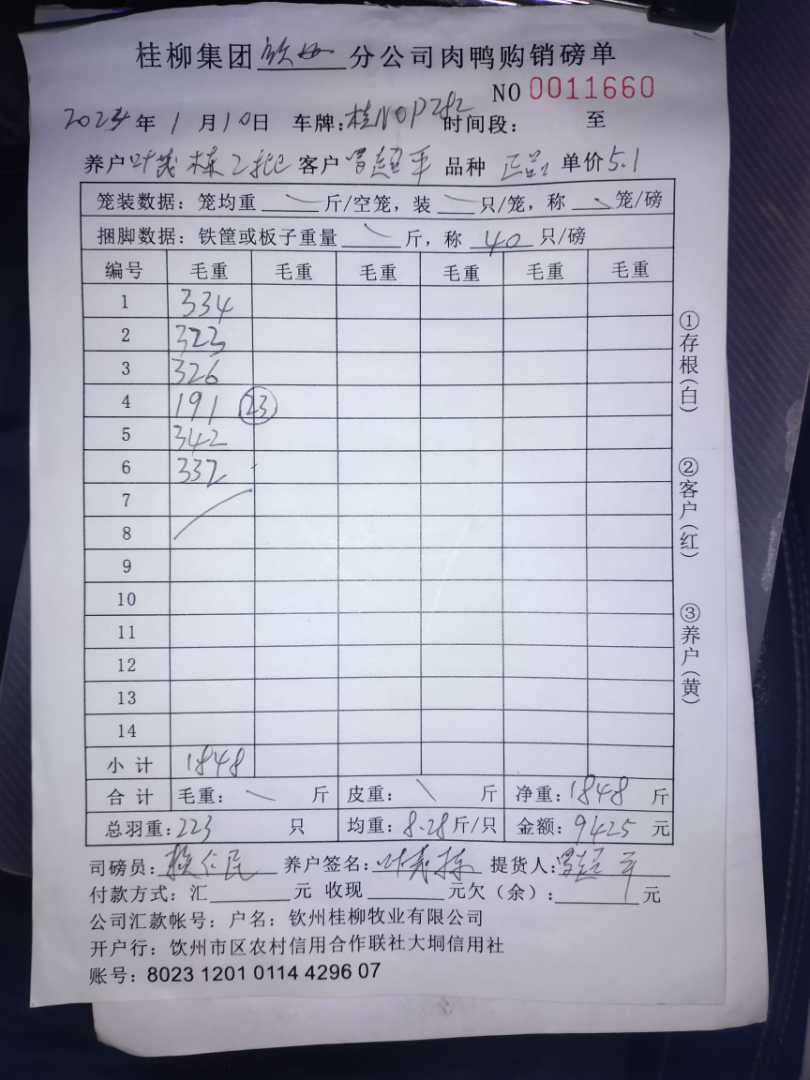 桂柳集团钦州分公司肉鸭购销磅单
NO 0011660
2024年1月10日 车牌:桂N0P282 时间段: 至
养户叶茂栋乙批 客户 罗超平 品种 正品 单价5.1
笼装数据:笼均重 斤/空笼,装 只/笼,称 笼/磅
捆脚数据:铁筐或板子重量 斤,称 40 只/磅
编号 毛重 毛重 毛重 毛重 毛重 毛重
1 334
2 323
3 326
4 191 23
5 342
6 332
7
8
9
10
11
12
13
14
小计 1848
合计 毛重: 斤 皮重: 斤 净重:1848 斤
总羽重:223 只 均重:8.28斤/只 金额:9425 元
司磅员: 仁民 养户签名:叶茂栋 提货人:罗超平
付款方式:汇 元 收现 元欠(余): 元
公司汇款帐号:户名:钦州桂柳牧业有限公司
开户行:饮州市区农村信用合作联社大垌信用社
账号:8023 1201 0114 4296 07
①存根(白)
②客户(红)
③养户(黄)